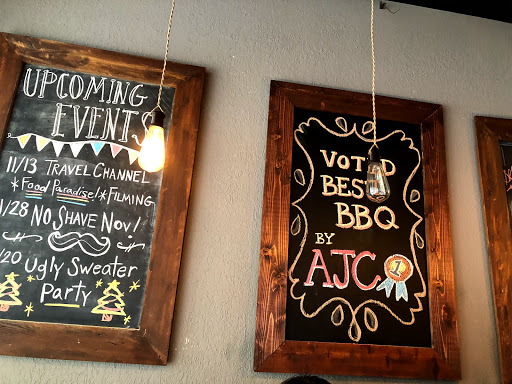 UPCOMING
EVENTS
11/13 TRAVEL CHANNEL
*Food Paradise!* FILMING
1/28 NO SHAVE NOV!
/20 Ugly Sweater
Party
VOTED
BEST
BBQ
BY
AJC
1